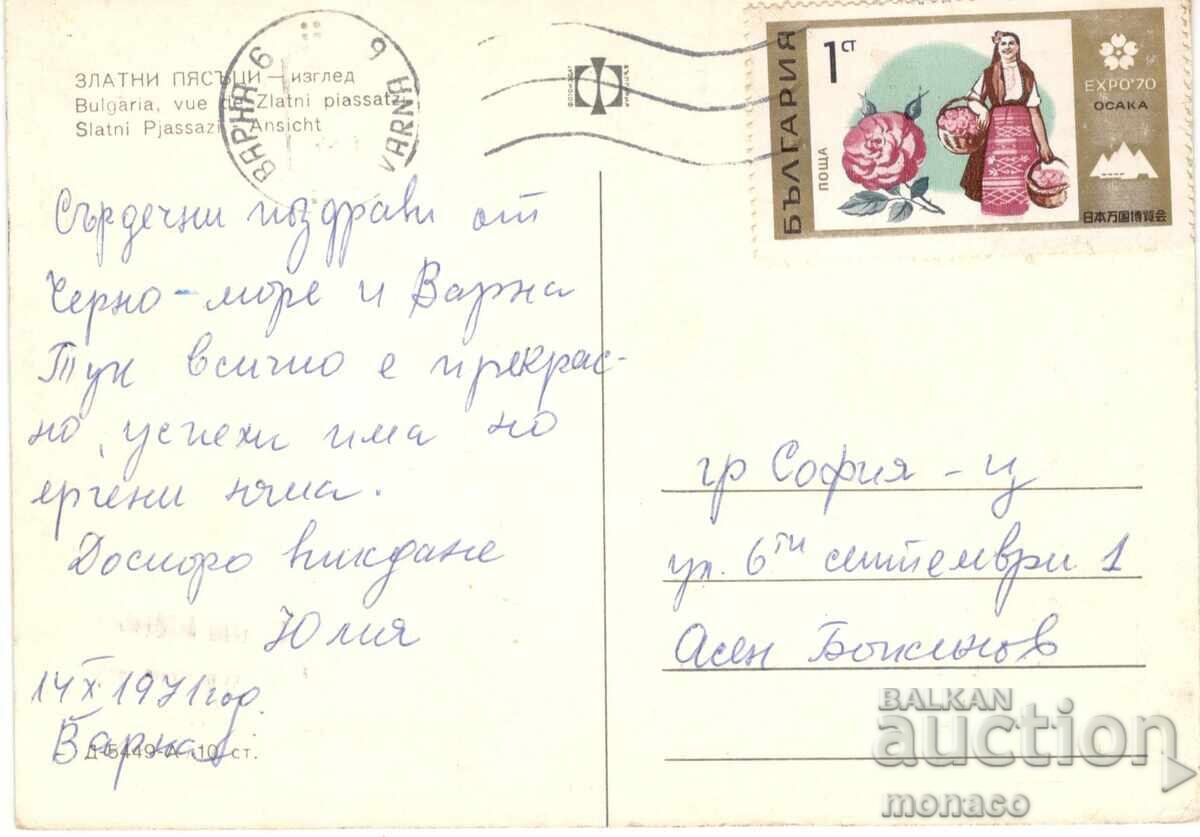 ЗЛАТНИ ПЯСЪЦИ — изглед
Bulgaria, vue de Zlatni piassatzi
Slatni Pjassazi, Ansicht
ВАРНА 6
6 VARNA
БЪЛГАРИЯ
1 СТ
ПОЩА
EXPO'70
ОСАКА
日本万国博覧会
Сърдечни поздрави от
Черно-море и Варна
Тук всично е прекрас-
но, успехи има но
ергени няма.
Доскоро виждане
Юлия
14 X 1971 год.
Варна
Д-5449-А 10 ст.
гр София - ц
ул. 6ти септември 1
Асен
BALKAN
auction
monaco